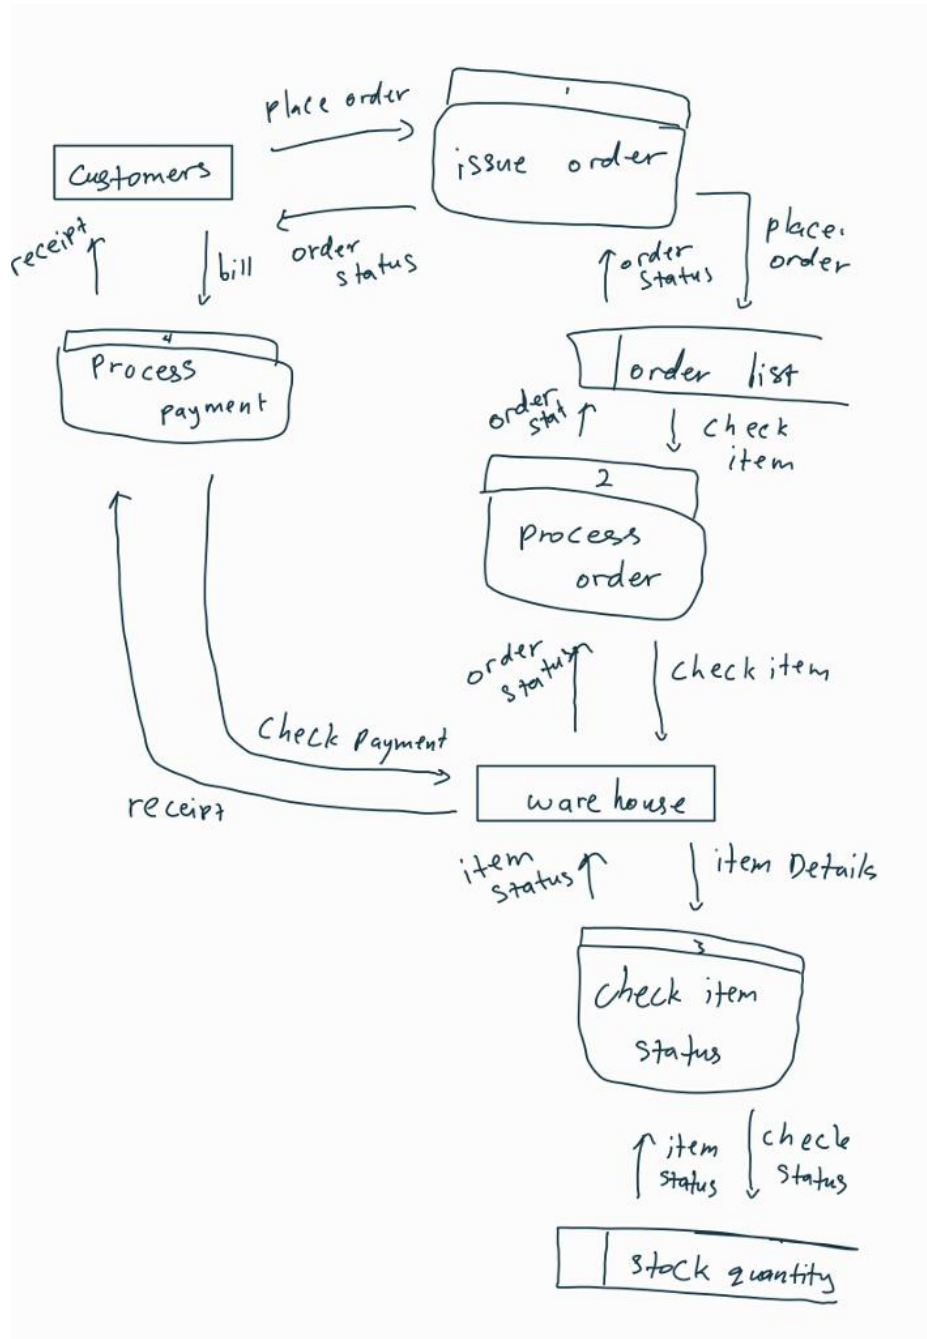 place order
1
issue order
Customers
receipt
bill
order
status
order
status
place.
order
4
Process
payment
order list
order
stat
check
item
2
process
order
order
status
check item
Check Payment
receipt
ware house
item
status
item Details
3
check item
status
item
status
check
status
stock quantity